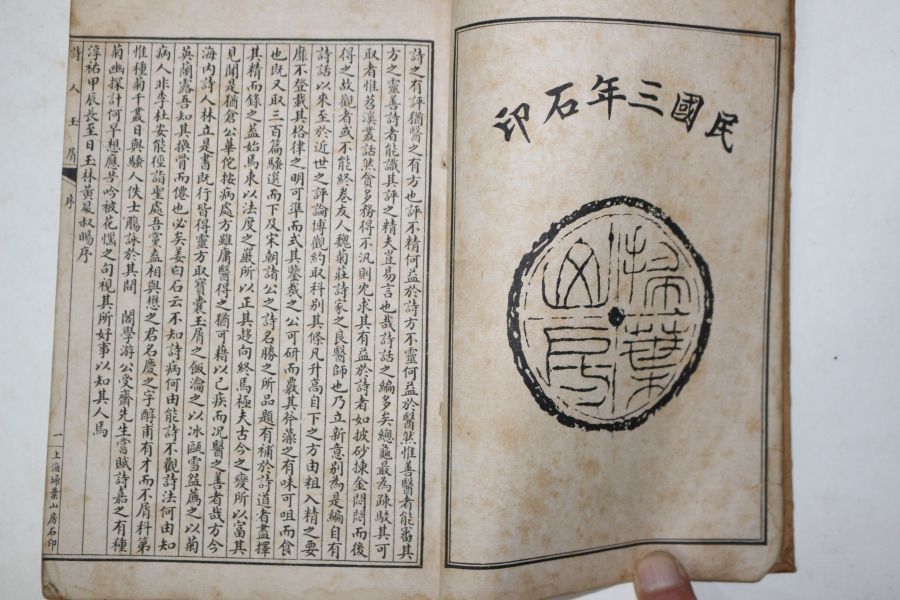 民國三年石印
掃葉山房
詩之有評猶醫之有方也評不精何益於詩方不靈何益於醫然惟善醫者能審其
方之靈善詩者能識其評之精夫豈易言也哉詩話之編多矣總龜最為疎駁其可
取者惟苕溪叢話然貪多務得不汎則宂求其有益於詩者如披砂揀金悶悶而後
得之故觀者或不能終卷友人魏菊莊詩家之良醫師也乃立新意別為是編自有
詩話以來至於近世之評論博觀約取科別其條凡升高自下之方由粗入精之要
靡不登載其格律之明可準而式其鑒裁之公可研而覈其斧藻之有味可咀而食
也既又取三百篇騷選而下及宋朝諸公之詩名勝之所品題有補於詩道者盡擇
其精而錄之蓋始焉束以法度之嚴所以正其趨向終焉極夫古今之變所以富其
見聞是猶倉公華佗按病處方雖庸醫得之猶可藉以已疾而況醫之善者哉方今
海內詩人林立是書既行皆得靈方取寶囊玉屑之飯瀹之以冰甌雪盌薦之以菊
英蘭露吾知其換骨而僊也必矣姜白石云不知詩病何由能詩不觀詩法何由知
病人非李杜安能徑詣聖處吾黨盍相與懋之君名慶之字醇甫有才而不屑科第
惟種菊千叢日與騷人佚士觴詠於其間 閣學游公受齋先生嘗賦詩嘉之有種
菊幽探計何早想應苦吟被花惱之句視其所好事以知其人焉
淳祐甲辰長至日玉林黃昇叔暘序
詩人玉屑 序 一 上海埽葉山房石印